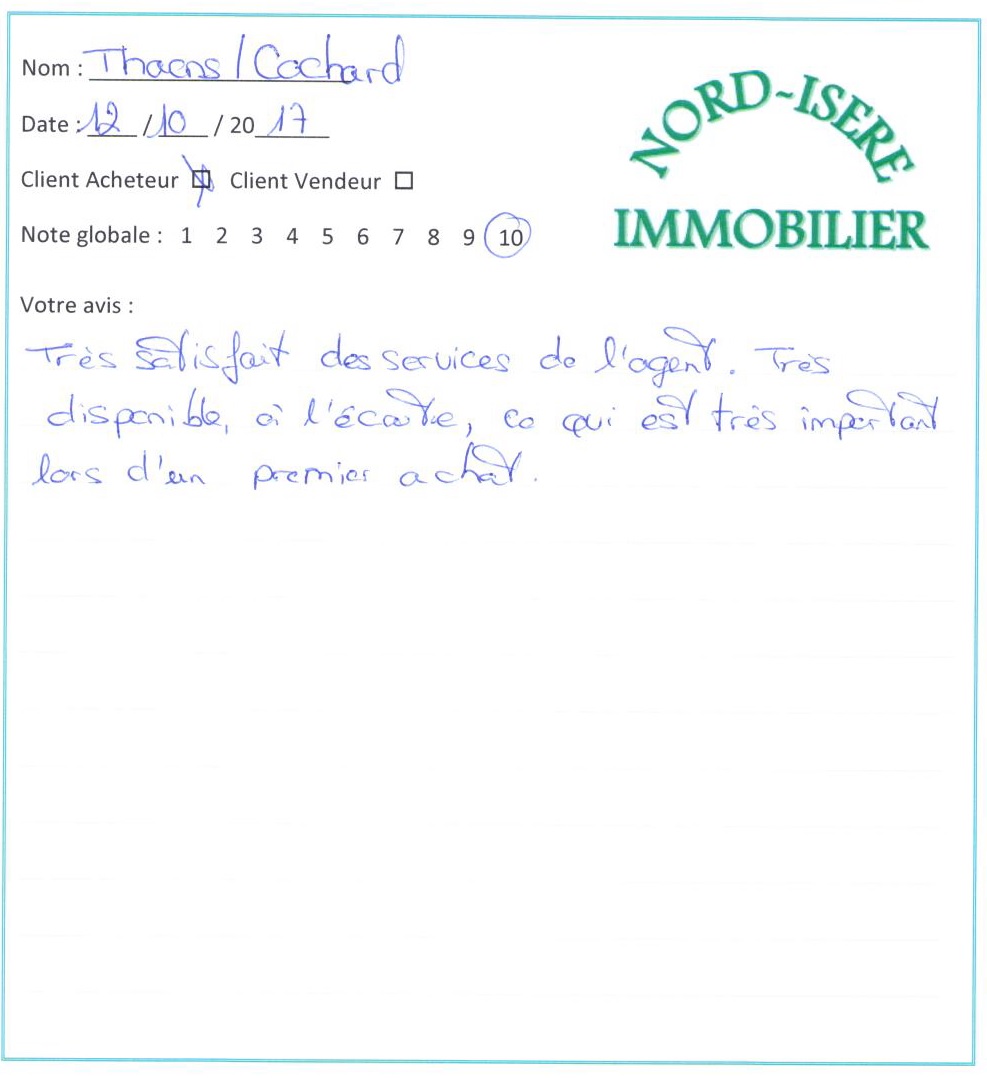 Nom : Thaens / Cochard
NORD-ISERE
IMMOBILIER
Date : 12 / 10 / 20 17
Client Acheteur ☒ Client Vendeur ☐
Note globale : 1 2 3 4 5 6 7 8 9 10
Votre avis :
Très satisfait des services de l'agent. Très
disponible, à l'écoute, ce qui est très important
lors d'un premier achat.